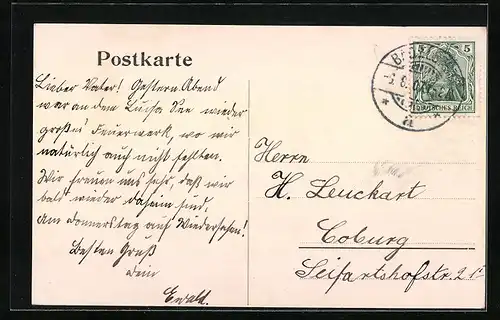 Postkarte
Lieber Vater! Gestern Abend
war an dem Luisa See wieder
großes Feuerwerk, wo wir
natürlich auch nicht fehlten.
Wir freuen uns sehr, daß wir
bald wieder daheim sind.
Am Donnerstag auf Wiedersehen!
Besten Gruß
Dein
Ewald.
5
DEUTSCHES REICH
a
Herrn
H. Leuckart
Coburg
Seifartshofstr. 2